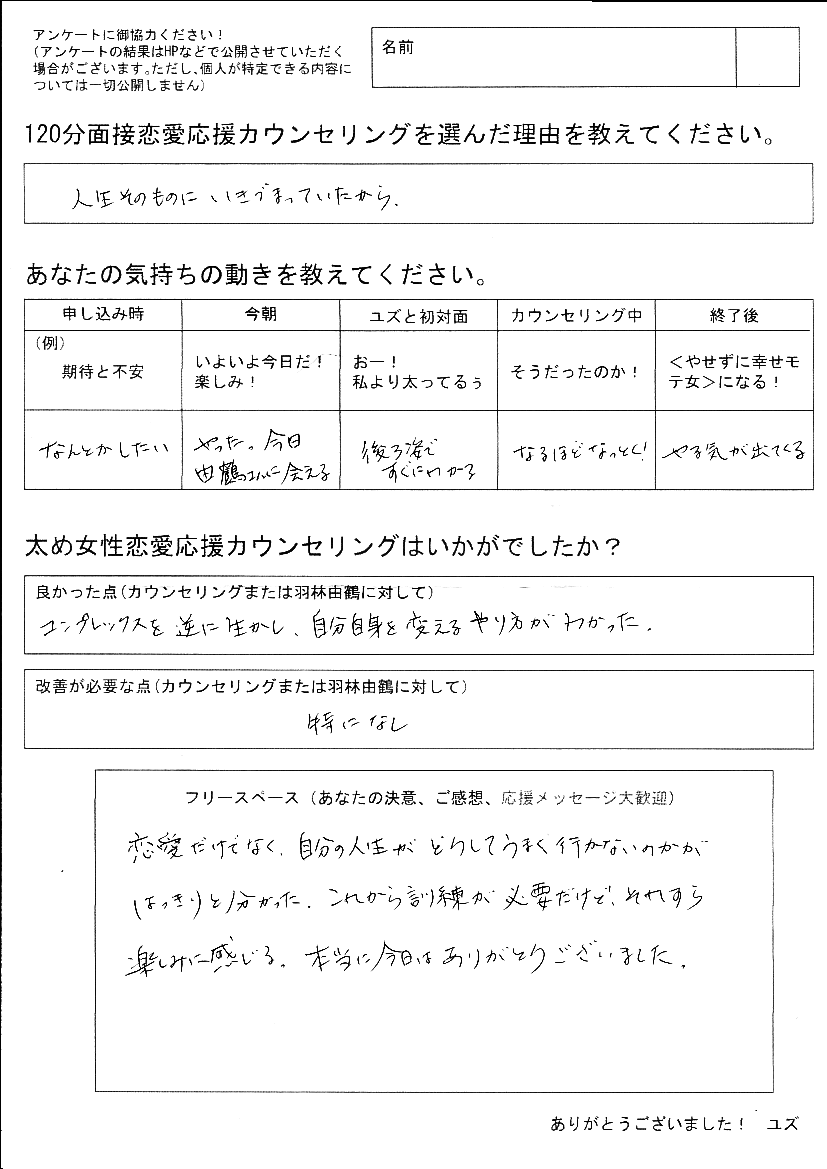 アンケートに御協力ください！
（アンケートの結果はHPなどで公開させていただく
場合がございます。ただし、個人が特定できる内容に
ついては一切公開しません）
名前
120分面接恋愛応援カウンセリングを選んだ理由を教えてください。
人生そのものに いきづまっていたから、
あなたの気持ちの動きを教えてください。
申し込み時 今朝 ユズと初対面 カウンセリング中 終了後
（例）
期待と不安
いよいよ今日だ！
楽しみ！
おー！
私より太ってるぅ
そうだったのか！
＜やせずに幸せモ
テ女＞になる！
なんとかしたい
やった。今日
由鶴さんに会える
後ろ姿で
すぐにわかる
なるほど なっとく!
やる気が出てくる
太め女性恋愛応援カウンセリングはいかがでしたか？
良かった点（カウンセリングまたは羽林由鶴に対して）
コンプレックスを 逆に生かし、自分自身を変えるやり方がわかった.
改善が必要な点（カウンセリングまたは羽林由鶴に対して）
特になし
フリースペース（あなたの決意、ご感想、応援メッセージ大歓迎）
恋愛だけでなく、自分の人生が どうしてうまく行かないのかが
はっきりと分かった. これから訓練が 必要だけど、それすら
楽しみに感じる。本当に今日は ありがとうございました.
ありがとうございました！　ユズ